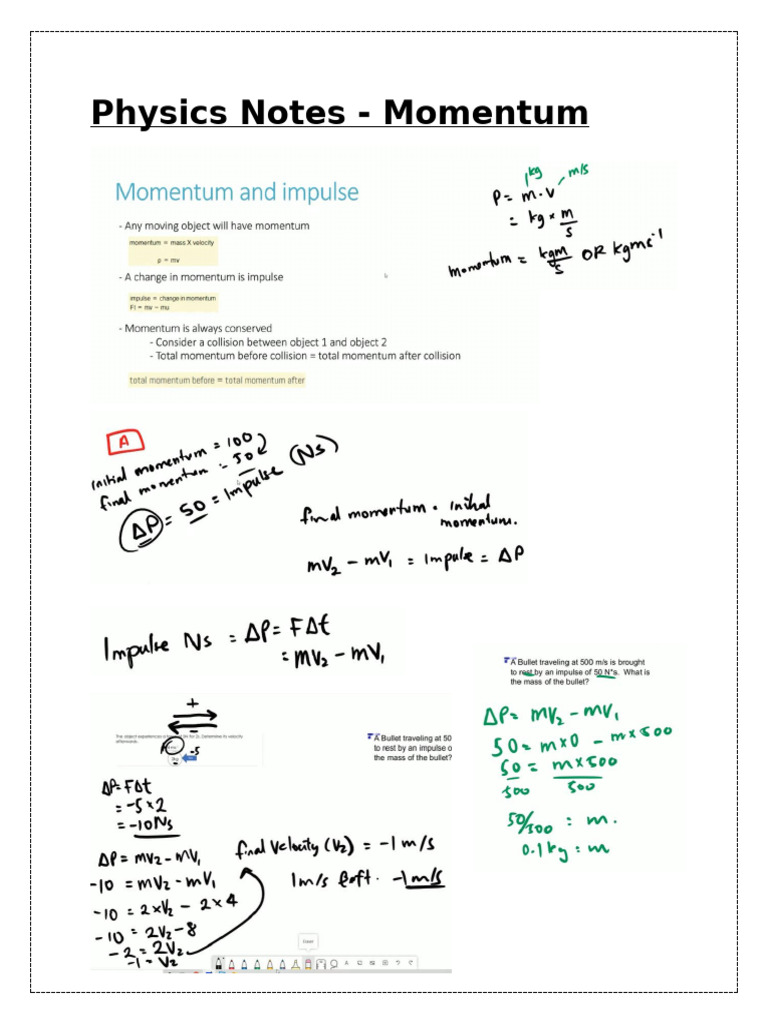 Physics Notes - Momentum
Momentum and impulse
- Any moving object will have momentum
momentum = mass X velocity
p = mv
- A change in momentum is impulse
impulse = change in momentum
Ft = mv – mu
- Momentum is always conserved
- Consider a collision between object 1 and object 2
- Total momentum before collision = total momentum after collision
total momentum before = total momentum after
kg m/s
P = m.v
= kg × m/s
momentum = kgm/s OR kgms⁻¹
A
initial momentum = 100
final momentum = 50
ΔP = 50 = Impulse (Ns)
final momentum - initial
momentum.
mV₂ - mV₁ = Impulse = ΔP
Impulse Ns = ΔP = FΔt
= mV₂ - mV₁
A Bullet traveling at 500 m/s is brought
to rest by an impulse of 50 N*s. What is
the mass of the bullet?
ΔP = mV₂ - mV₁
50 = m×0 - m×500
50/500 = m×500/500
50/500 = m.
0.1kg = m
+
-
-5
2kg
A Bullet traveling at 50
to rest by an impulse o
the mass of the bullet?
ΔP = FΔt
= -5 × 2
= -10Ns
ΔP = mV₂ - mV₁
-10 = mV₂ - mV₁
-10 = 2×V₂ - 2×4
-10 = 2V₂ - 8
-2 = 2V₂
-1 = V₂
final velocity (V₂) = -1 m/s
1m/s left. -1m/s